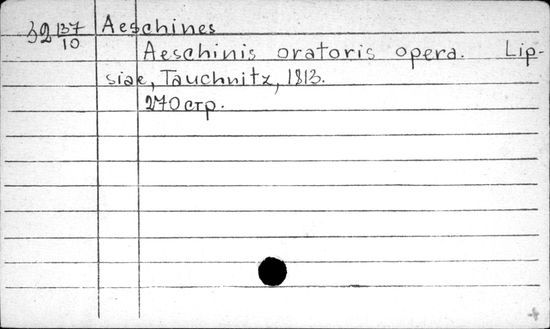 32 137/10 Aeschines
Aeschinis oratoris opera. Lip-
siae, Tauchnitz, 1813.
270 стр.